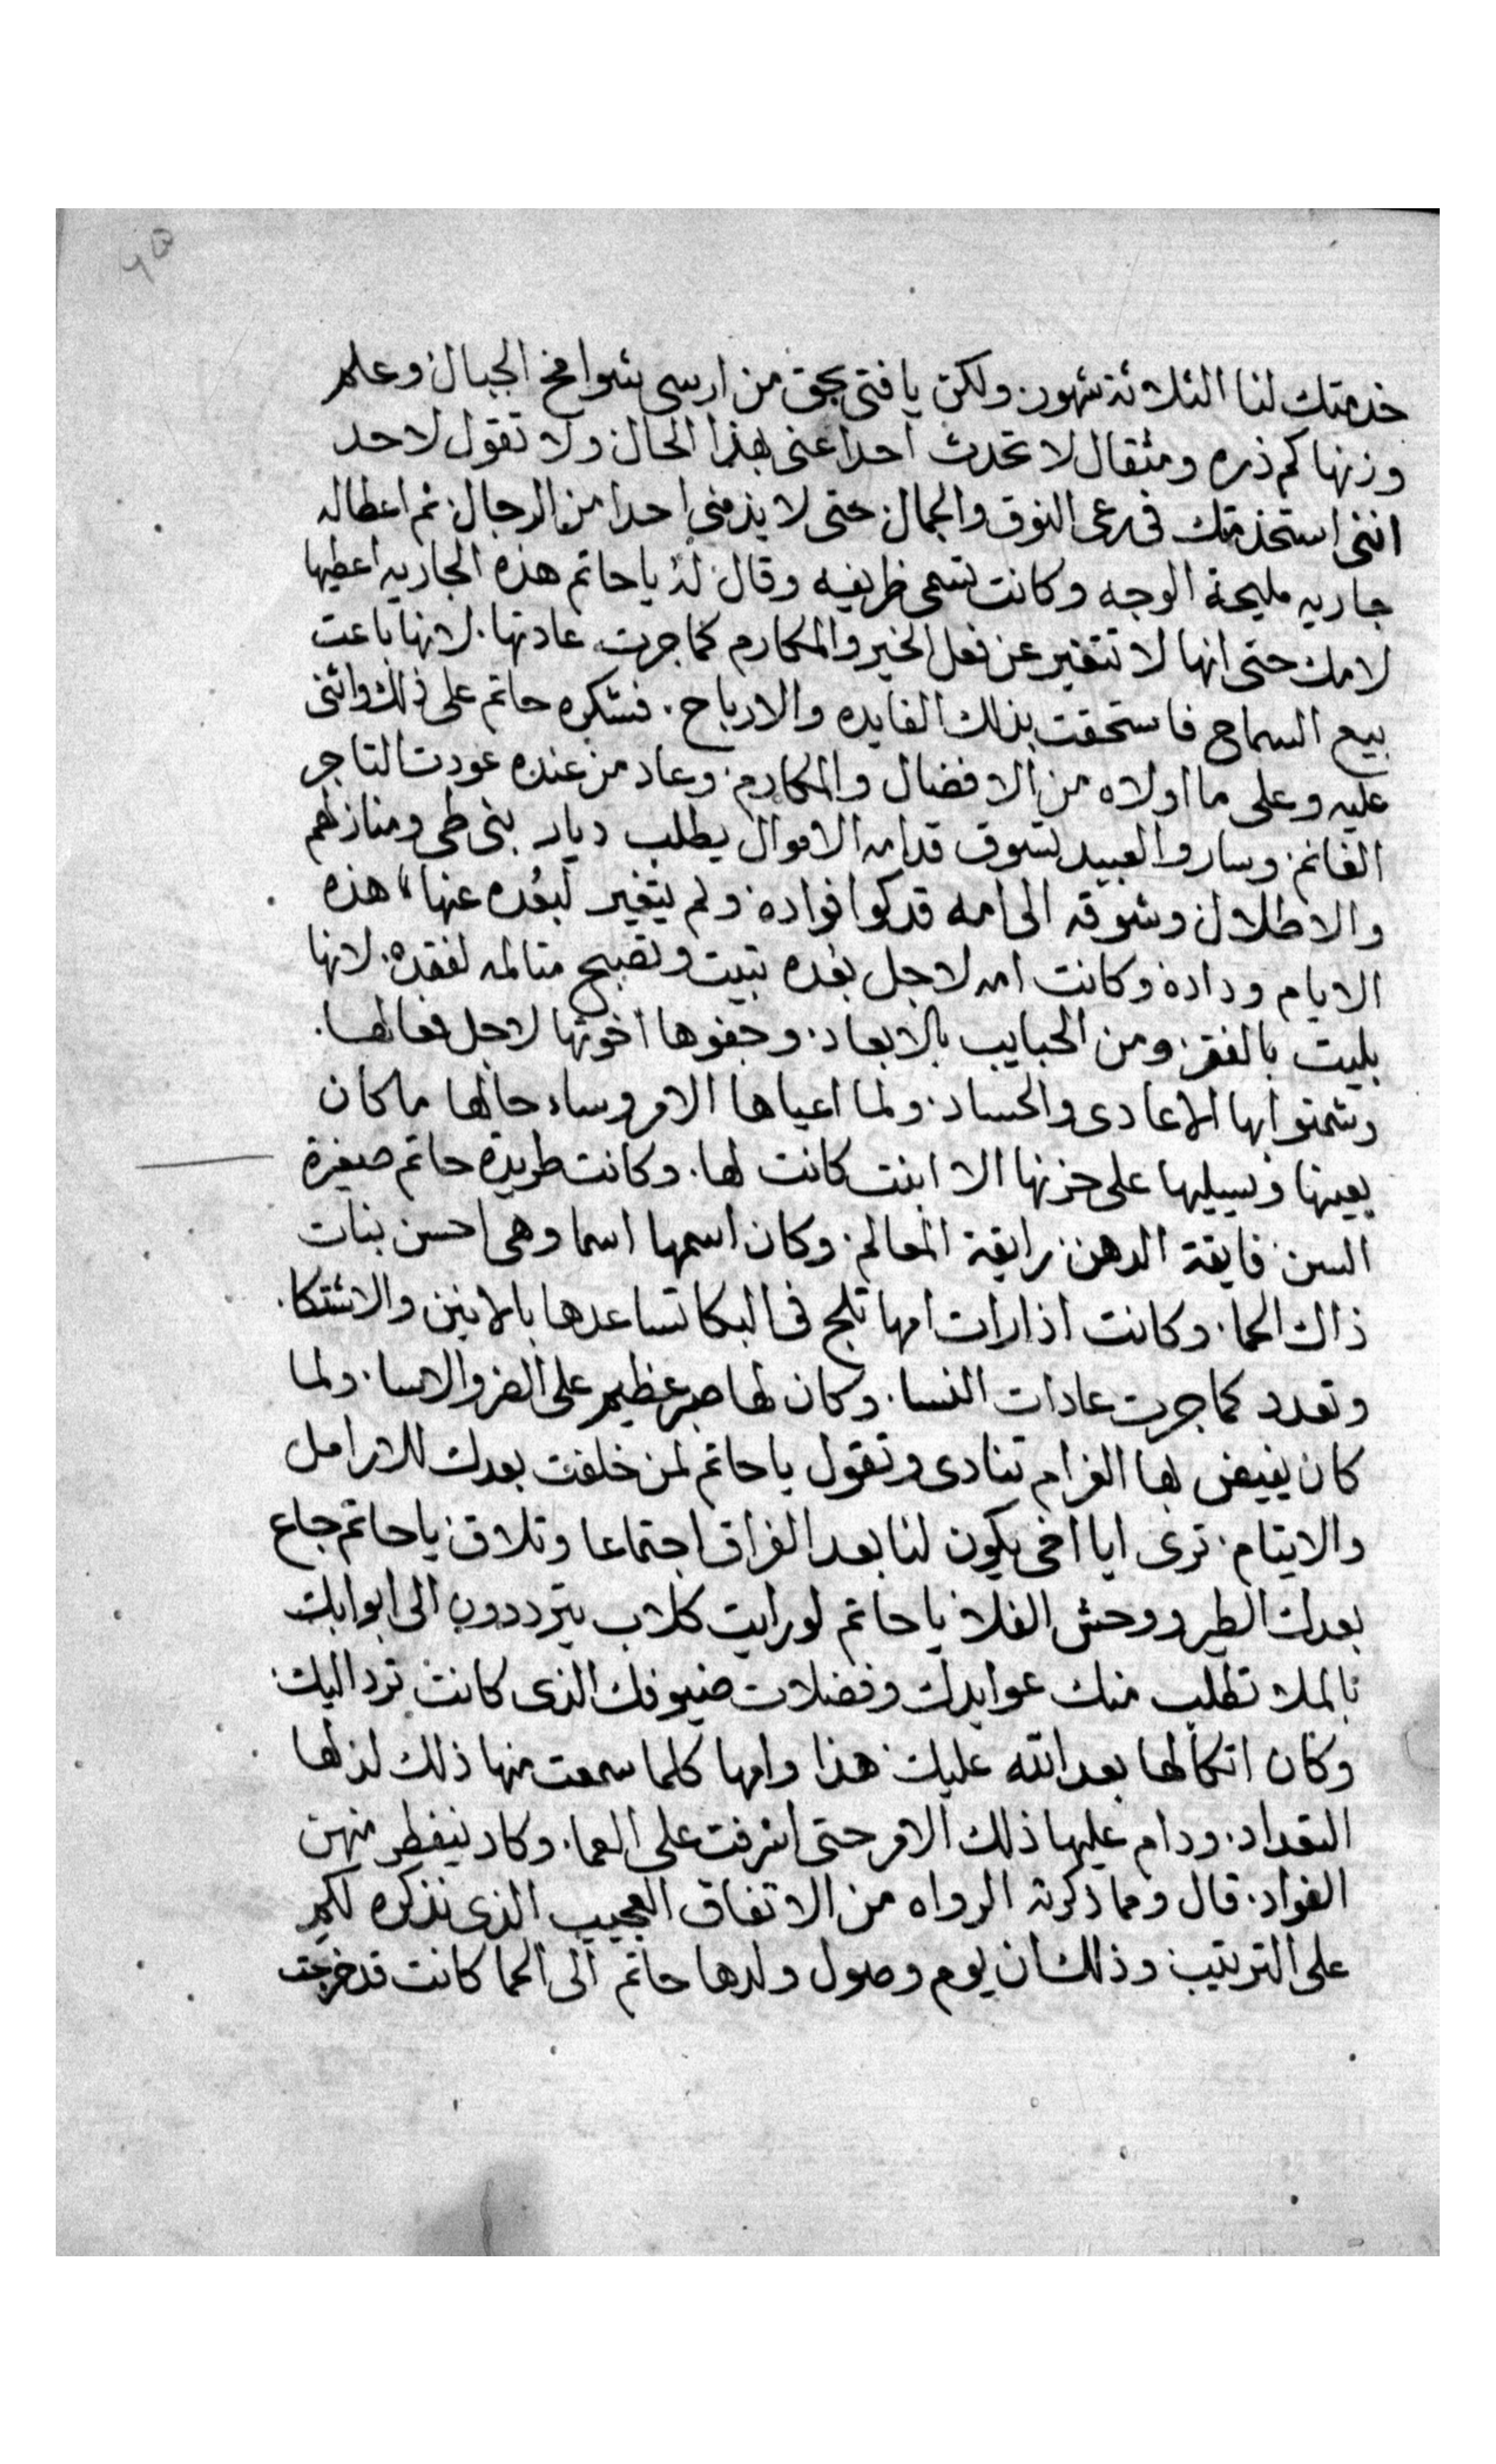 خدمتك لنا الثلاثة شهور. ولكن يا فتى بحق من ارسى شوامخ الجبال وعلم
وزنها كم ذره ومثقال لا تحدث احدا عنى بهذا الحال ولا تقول لاحد
اننى استخدمتك فى رعى النوق والجمال حتى لا يذمنى احدا من الرجال ثم اعطاله
جاريه مليحة الوجه وكانت تسمى ظريفيه وقال لهُ يا حاتم هذه الجاريه اعطيها
لامك حتى انها لا تتغير عن فعل الخير والمكارم كما جرت عادتها. لانها باعت
بيع السماح فاستحقت بذلك الفايده والارباح. فشكره حاتم على ذلك واثنى
عليه وعلى ما اولاه من الافضال والمكارم. وعاد من عنده عودت التاجر
الغانم. وسار والعبيد تسوق قدامه الاموال يطلب ديار بنى طى ومنازلهم
والاطلال وشوقه الى امه قد كوا فواده ولم يتغير لبُعده عنها هذه
الايام وداده وكانت امه لاجل بعده تبيت وتصبح متالمه لفقده. لانها
بليت بالفقر. ومن الحبايب بالابعاد. وجفوها اخوتها لاجل فعالها.
وشمتوا بها الاعادى والحساد. ولما اعياها الامر وساء حالها ما كان
يعينها ويسيليها على حزنها الا ابنت كانت لها. وكانت طريدة حاتم صغيرة
السن فايقة الدهن رايقة المعالم. وكان اسمها اسما وهى احسن بنات
ذاك الحما. وكانت اذا رات امها تلج فى البكا تساعدها بالانين والاشتكا.
وتعدد كما جرت عادات النسا. وكان لها صبر عظيم على الضر والاسا. ولما
كان يفيض بها الغرام تنادى وتقول يا حاتم لمن خلفت بعدك للارامل
والايتام. ترى ايا اخى يكون لنا بعد الفراق اجتماعا وتلاق يا حاتم جاع
بعدك الطير ووحش الفلا يا حاتم لو رايت كلاب يترددون الى ابوابك
بالملا تطلب منك عوايدك وفضلات ضيوفك الذى كانت ترد اليك.
وكان اتكالها بعد الله عليك هذا وامها كلما سمعت منها ذلك لذلها
التعداد. ودام عليها ذلك الامر حتى اشرفت على العما. وكاد ينفطر منهن
الفواد. قال ومما ذكرته الرواه من الاتفاق العجيب الذى نذكره لكم
على الترتيب وذلك ان يوم وصول ولدها حاتم الى الحما كانت قد خرجت